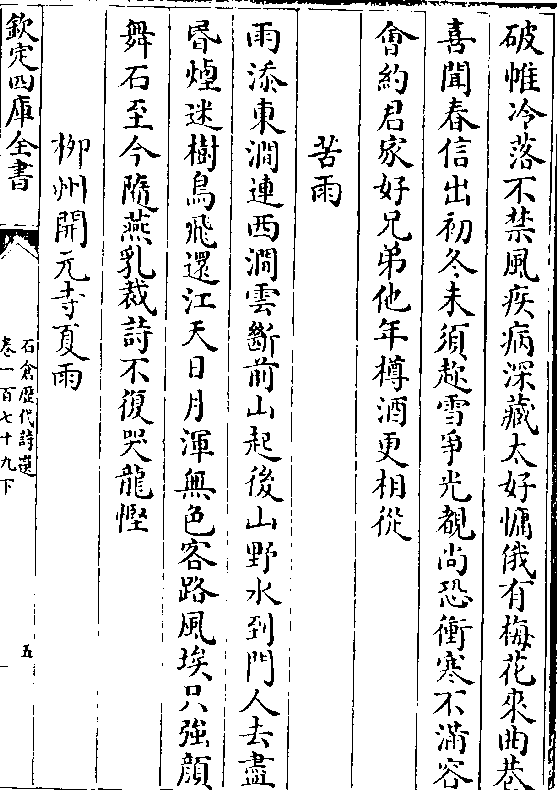 破帷冷落不禁風疾病深藏太好慵俄有梅花來曲巷
喜聞春信出初冬未須趂雪爭光覩尚恐衝寒不滿容
會約君家好兄弟他年樽酒更相從
苦雨
雨添東澗連西澗雲斷前山起後山野水到門人去盡
昬煙迷樹鳥飛還江天日月渾無色客路風埃只強顔
舞石至今隨燕乳裁詩不復哭龍慳
柳州開元寺夏雨
欽定四庫全書
石倉歴代詩選
卷一百七十九下
五